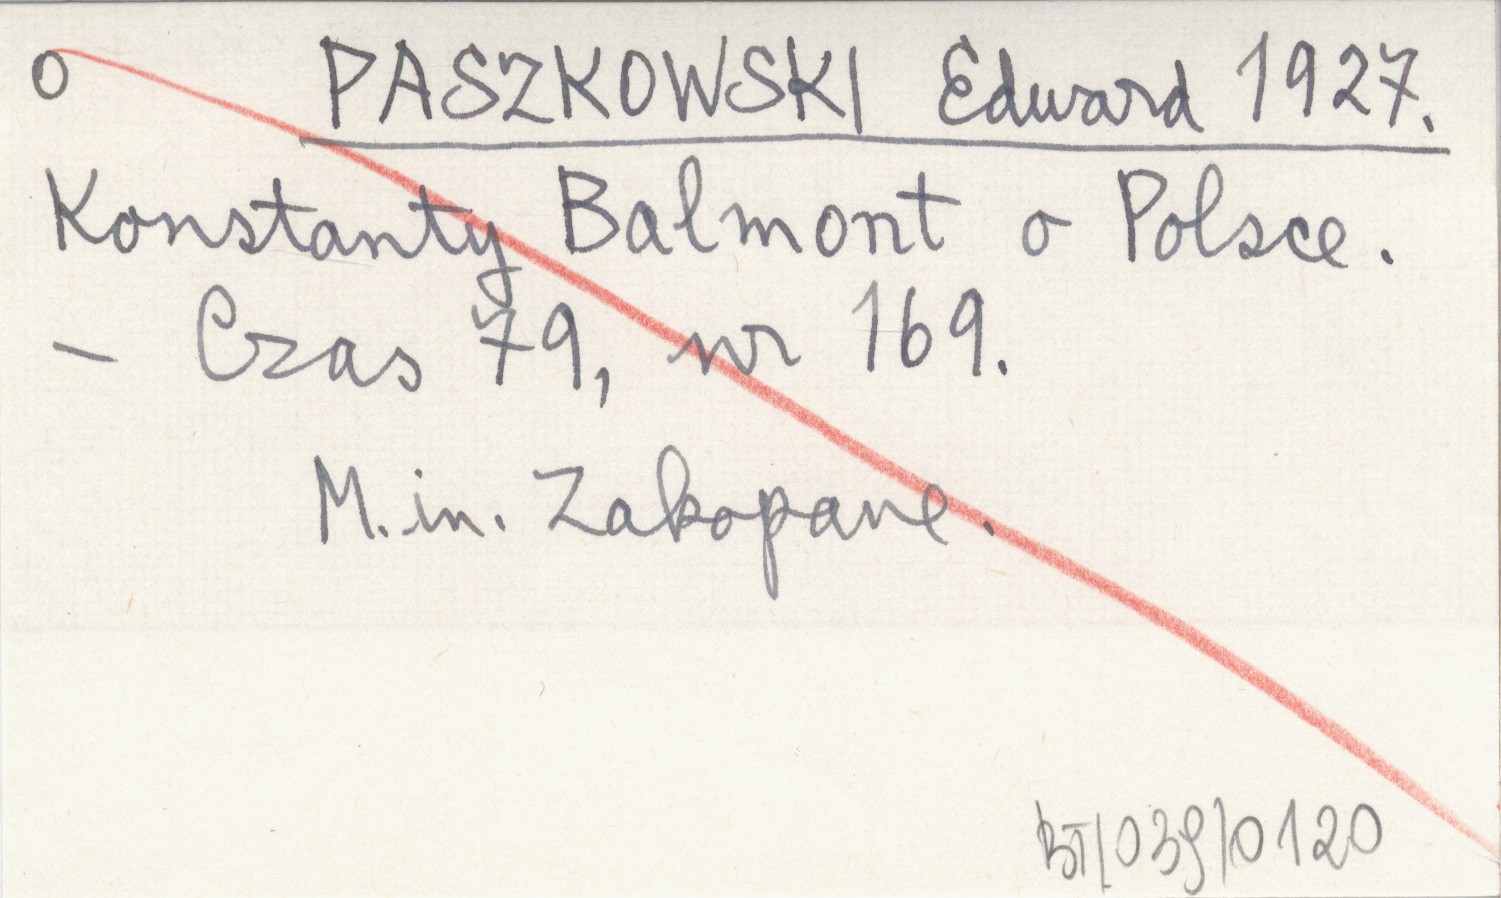 o PASZKOWSKI Edward 1927.
Konstanty Balmont o Polsce.
– Czas 79, nr 169.
M. in. Zakopane.
BT/039/0120